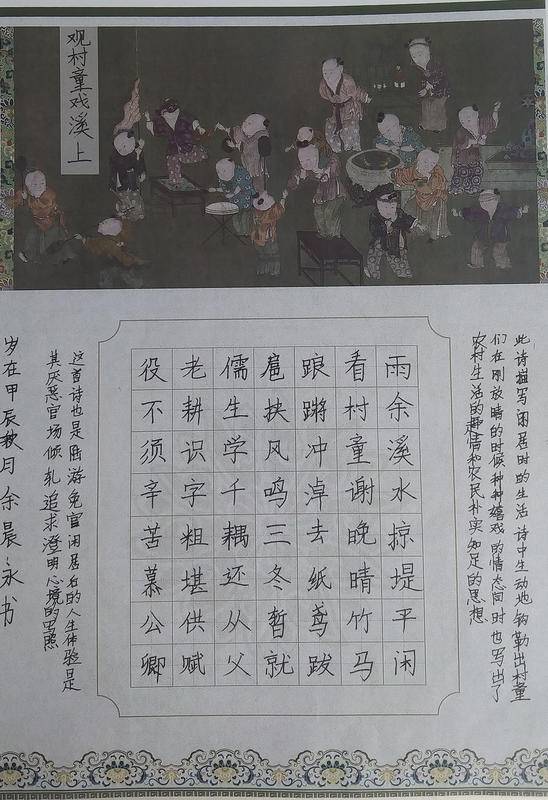 观村童戏溪上
此诗描写闲居时的生活 诗中生动地钩勒出村童
们在刚放晴的时候种种嬉戏的情态同时也写出了
农村生活的 和农民朴实知足的思想
雨余溪水掠堤平闲
看村童谢晚晴竹马
踉蹡冲淖去纸鸢跋
扈挟风鸣三冬暂就
儒生学千耦还从父
老耕识字粗堪供赋
役不须辛苦慕公卿
这首诗也是陆游免官闲居后的人生体验是
其厌恶官场倾轧追求澄明心境的写照
岁在甲辰秋月余晨永书